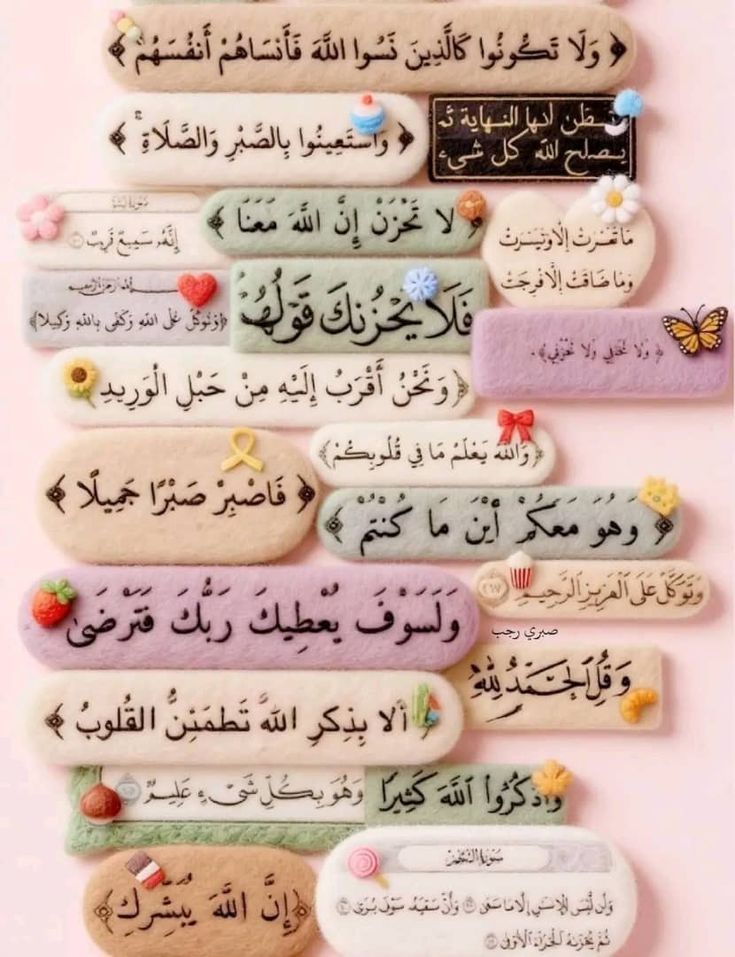 ﴿ وَلَا تَكُونُوا كَالَّذِينَ نَسُوا اللَّهَ فَأَنسَاهُمْ أَنفُسَهُمْ ﴾
﴿ وَاسْتَعِينُوا بِالصَّبْرِ وَالصَّلَاةِ ۚ ﴾
تظن أنها النهاية ثم
يصلح الله كل شيء
إِنَّهُ سَمِيعٌ قَرِيبٌ
﴿ لَا تَحْزَنْ إِنَّ اللَّهَ مَعَنَا ﴾
مَا تَعَسَّرَتْ إِلَّا وَتَيَسَّرَتْ
وَمَا ضَاقَتْ إِلَّا فُرِجَتْ
﴿وَتَوَكَّلْ عَلَى اللَّهِ وَكَفَى بِاللَّهِ وَكِيلًا﴾
فَلَا يَحْزُنكَ قَوْلُهُمْ
﴿ وَلَا تَخَافِي وَلَا تَحْزَنِي ﴾ .
وَنَحْنُ أَقْرَبُ إِلَيْهِ مِنْ حَبْلِ الْوَرِيدِ ﴾
﴿وَاللَّهُ يَعْلَمُ مَا فِي قُلُوبِكُمْ﴾
﴿ فَاصْبِرْ صَبْرًا جَمِيلًا ﴾
﴿ وَهُوَ مَعَكُمْ أَيْنَ مَا كُنتُمْ ﴾
وَتَوَكَّلْ عَلَى الْعَزِيزِ الرَّحِيمِ ٢١٧
وَلَسَوْفَ يُعْطِيكَ رَبُّكَ فَتَرْضَىٰ
صبري رجب
وَقُلِ الْحَمْدُ لِلَّهِ
أَلَا بِذِكْرِ اللَّهِ تَطْمَئِنُّ الْقُلُوبُ ﴾
وَهُوَ بِكُلِّ شَيْءٍ عَلِيمٌ
وَاذْكُرُوا اللَّهَ كَثِيرًا
﴿إِنَّ اللَّهَ يُبَشِّرُكِ﴾
سُورَةُ النَّجْمِ
وَأَن لَّيْسَ لِلْإِنسَانِ إِلَّا مَا سَعَىٰ وَأَنَّ سَعْيَهُ سَوْفَ يُرَىٰ
ثُمَّ يُجْزَاهُ الْجَزَاءَ الْأَوْفَىٰ